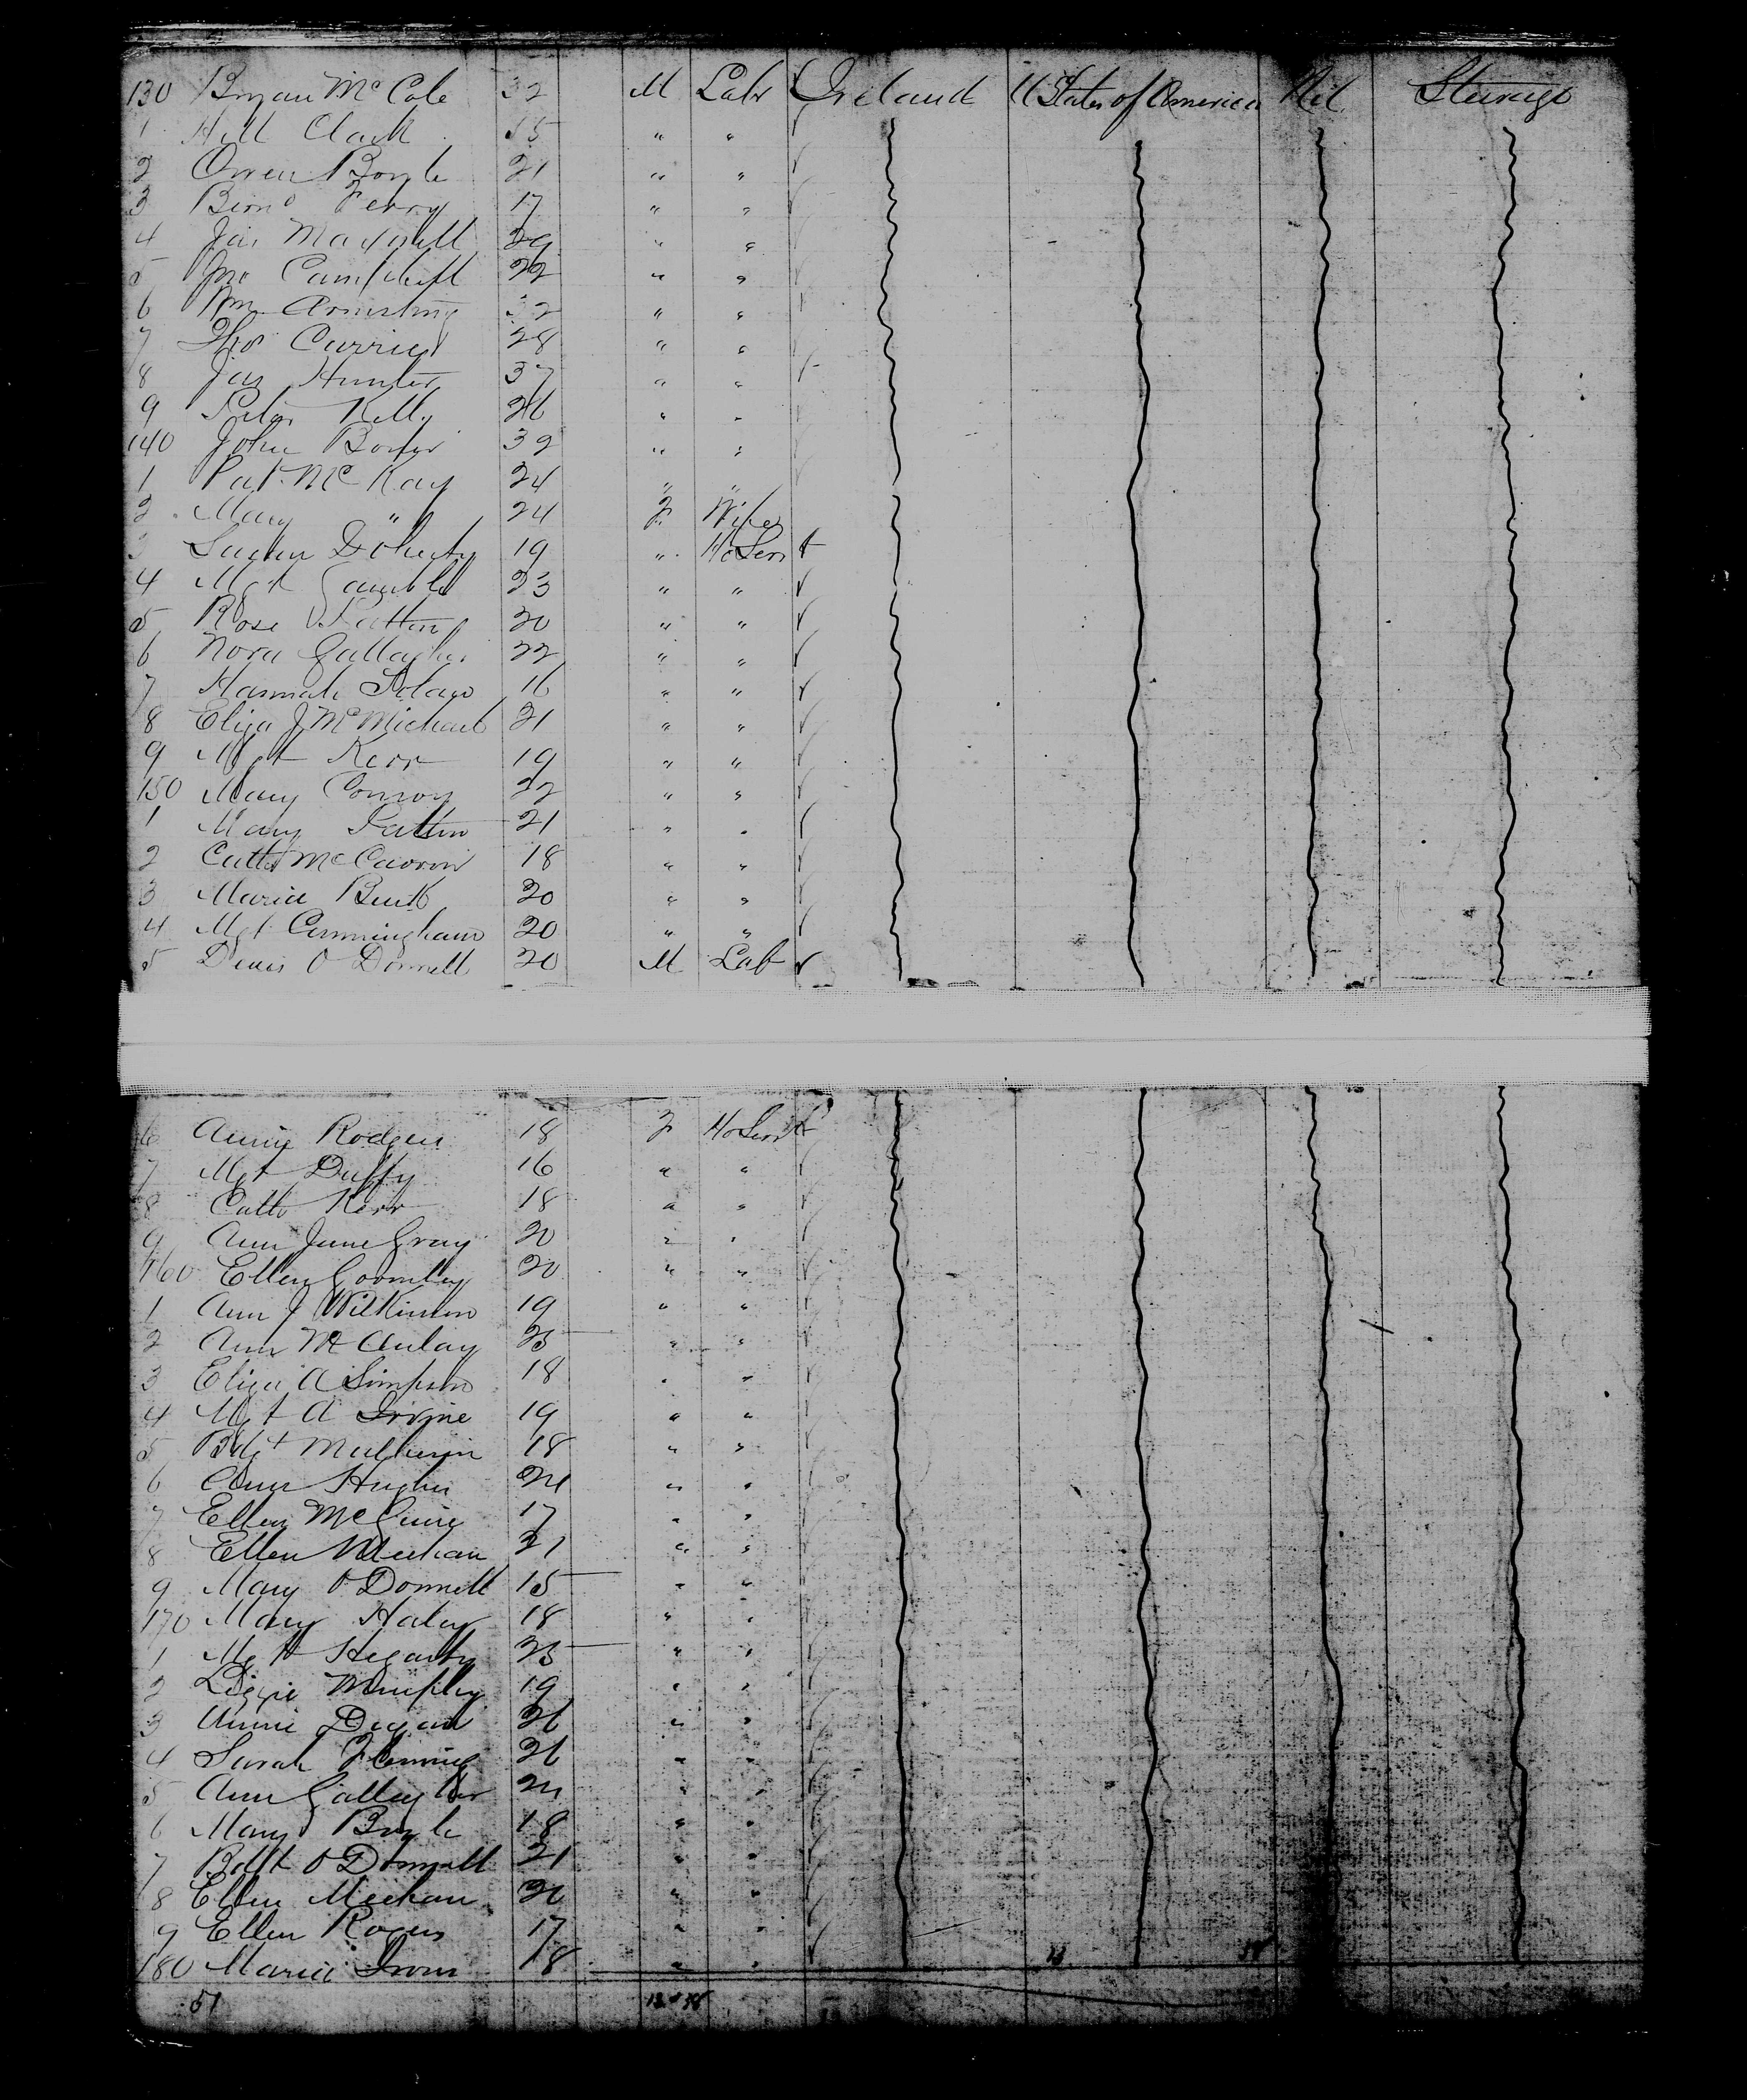 130 Bryan McCole 32 M Labr Ireland U States of America Nil Steerage
1 Hill Clark 15 " "
2 Owen Boyle 21 " "
3 Bernd Ferry 17 " "
4 Jas Maxwell 29 " "
5 Jno Campbell 22 " "
6 Wm Armstrong 32 " "
7 Thos Currie 28 " "
8 Jas Hunter 37 " "
9 Peter Kelly 26 " "
140 John 32 " "
1 Pat McKay 24 " "
2 Mary " 24 F Wife
3 Doherty 19 " HoServt
4 Mgt Gamble 23 " "
5 Rose Patton 20 " "
6 Nora Gallagher 22 " "
7 Hannah 16 " "
8 Eliza J McMichael 21 " "
9 Mgt Kerr 19 " "
150 Mary Conroy 22 " "
1 Mary Patton 21 " "
2 Cath 18 " "
3 Maria 20 " "
4 Mgt Cunningham 20 " "
5 Denis O Donnell 20 M Lab
6 Annie Rodgers 18 F HoServt
7 Mgt Duffy 16 " "
8 Cath Kerr 18 " "
9 Ann Jane Gray 20 " "
160 Ellen Gormley 20 " "
1 Ann J Wilkinson 19 " "
2 Ann McAulay 23 " "
3 Eliza A Simpson 18 " "
4 Mgt A Irvine 19 " "
5 Bdgt 18 " "
6 Ann Hughes 24 " "
7 Ellen McGuire 17 " "
8 Ellen Meehan 21 " "
9 Mary O Donnell 15 " "
170 Mary Haley 18 " "
1 Mgt Hegarty 23 " "
2 Lizzie Murphy 19 " "
3 Annie 26 " "
4 Sarah Fleming 26 " "
5 Ann Gallagher 24 " "
6 Mary Boyle 18 " "
7 O Donnell 21 " "
8 Ellen Meehan 20 " "
9 Ellen Rogers 17 " "
180 Maria 18 " "
51 13 38